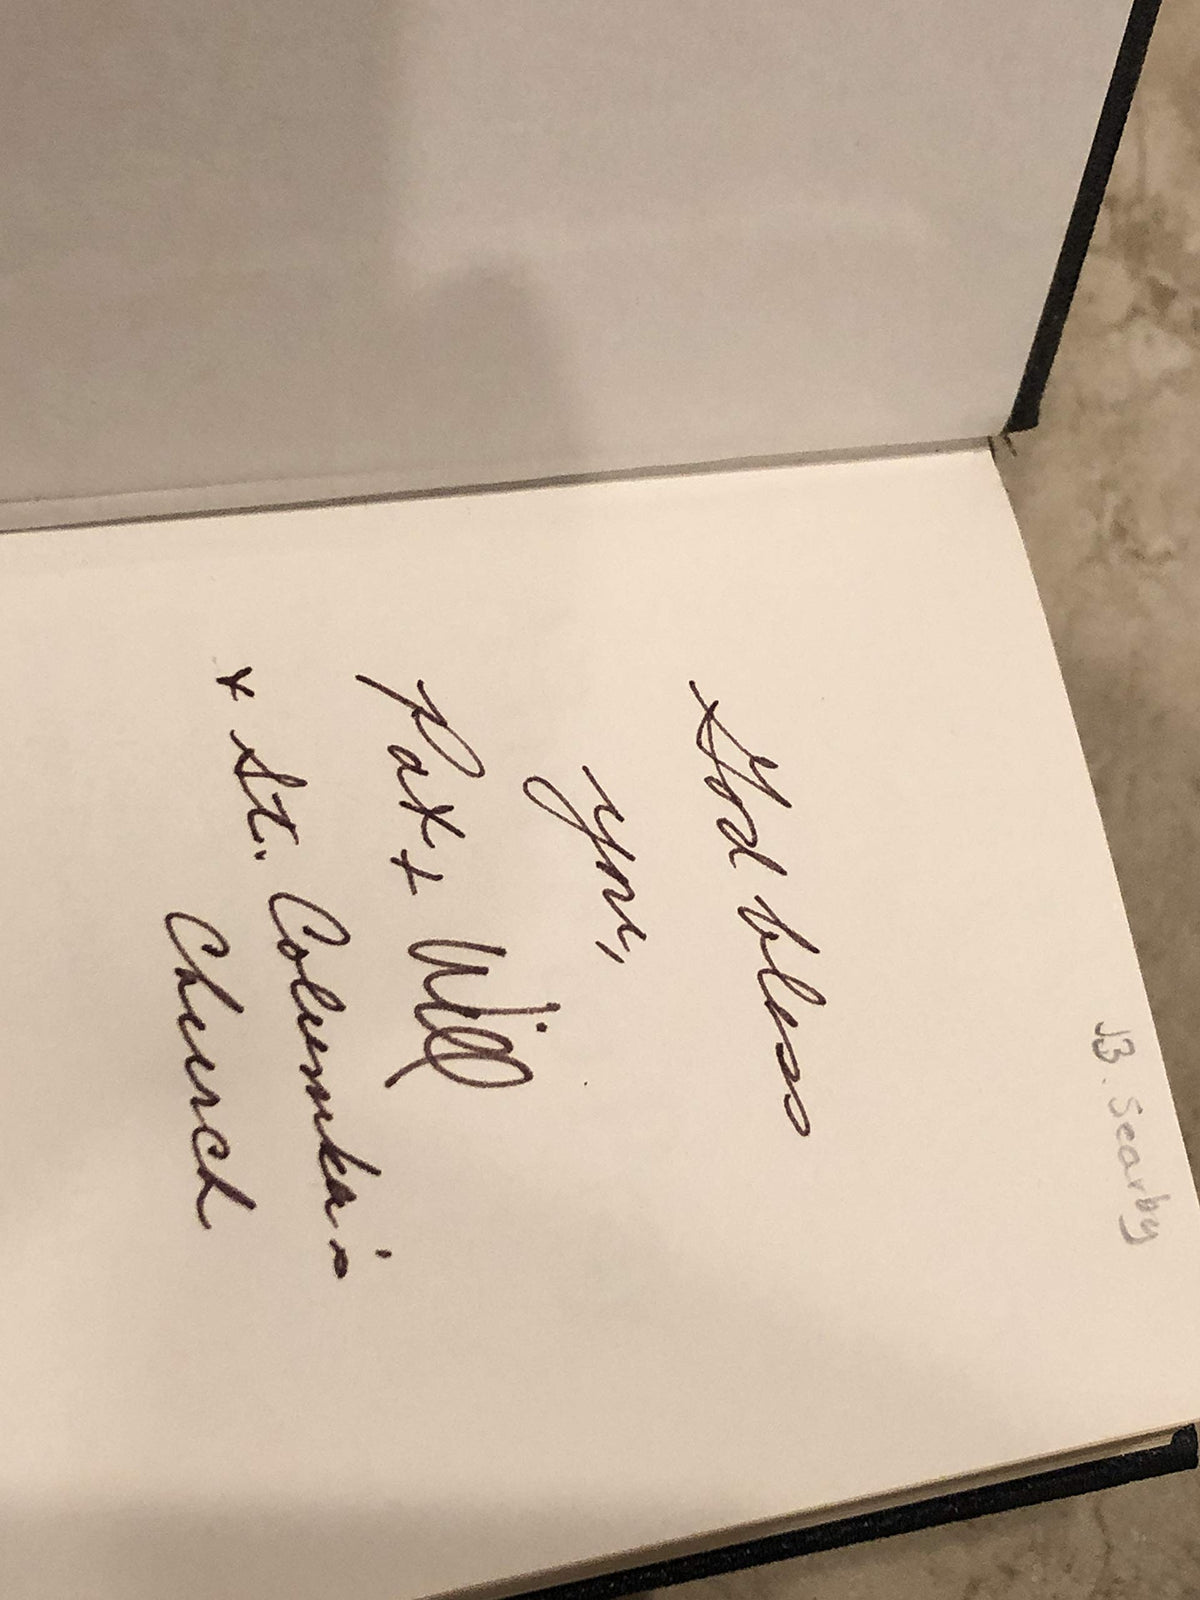 JB. Searby
God bless
you,
Pax + Will
+ St. Columka's
Church